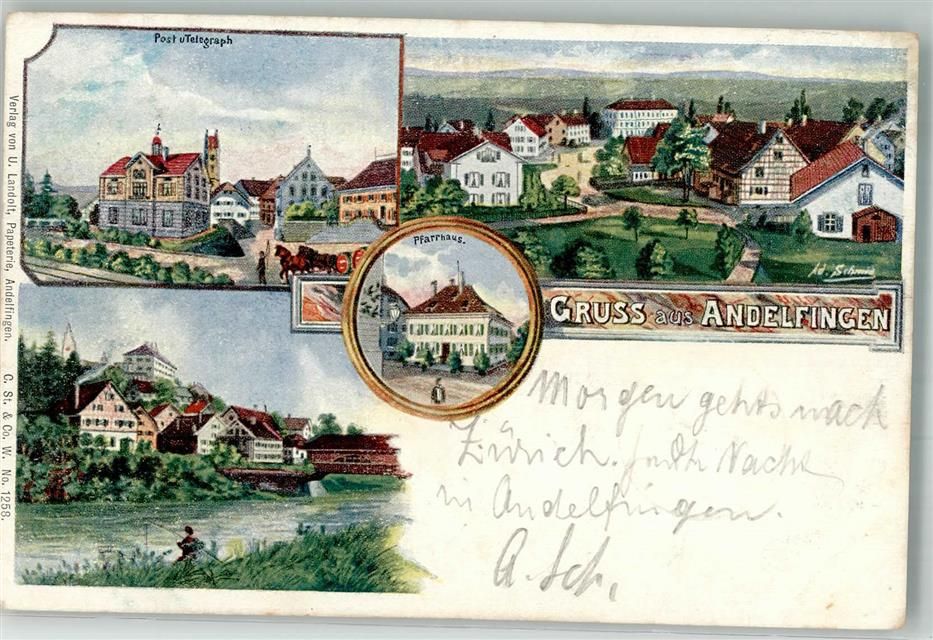 Post u Telegraph
Pfarrhaus.
Ad. Schmid
GRUSS aus ANDELFINGEN
Morgen gehts nach
Zürich. Nacht
in Andelfingen.
A. Sch.
Verlag von U. Landolt, Papeterie, Andelfingen. C. St. & Co. W. No. 1258.